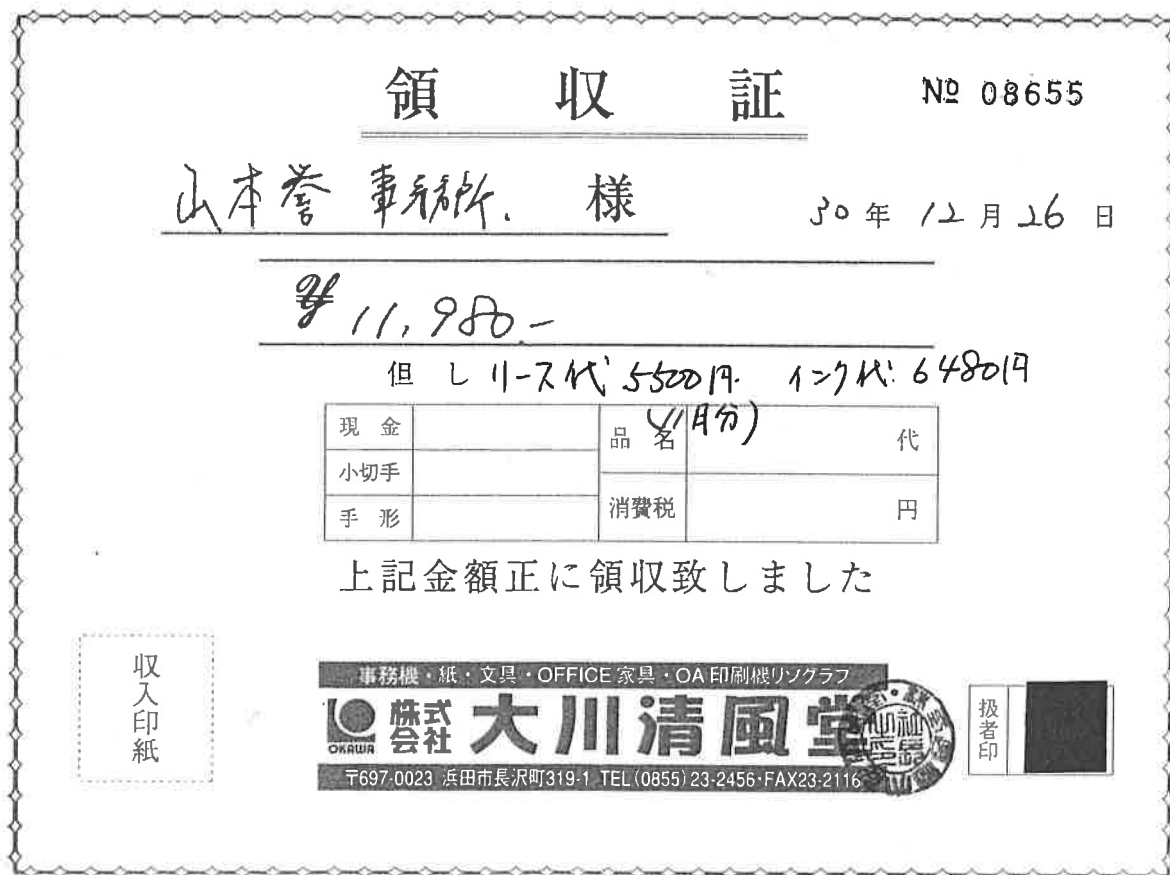 領収証
№ 08655
山本誉 事務所. 様
30年 12月 26日
¥ 11,980.-
但し リース代 5500円. インク代 6480円
(11月分)
現金
品名 代
小切手
消費税 円
手形
上記金額正に領収致しました
収入印紙
事務機・紙・文具・OFFICE家具・OA印刷機リソグラフ
OKAWA
株式会社 大川清風堂
〒697-0023 浜田市長沢町319-1 TEL(0855)23-2456・FAX23-2116
扱者印